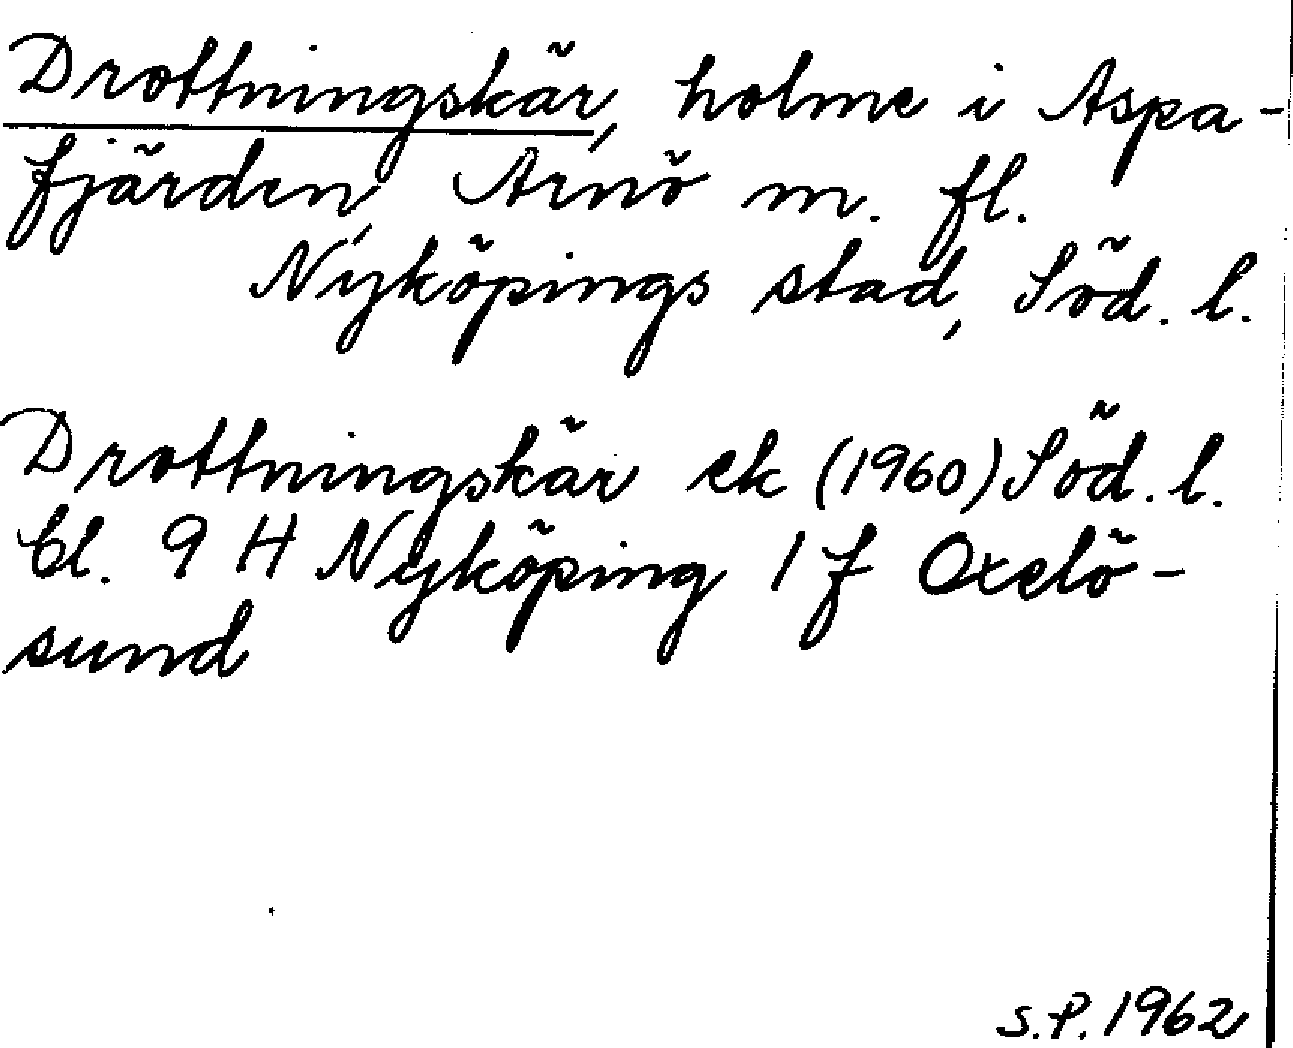 Drottningskär, holme i Aspa-
fjärden, Arnö m. fl.
Nyköpings stad, Söd. l.
Drottningskär ek (1960) Söd. l.
bl. 9 H Nyköping 1 f Oxelö-
sund
S.P. 1962